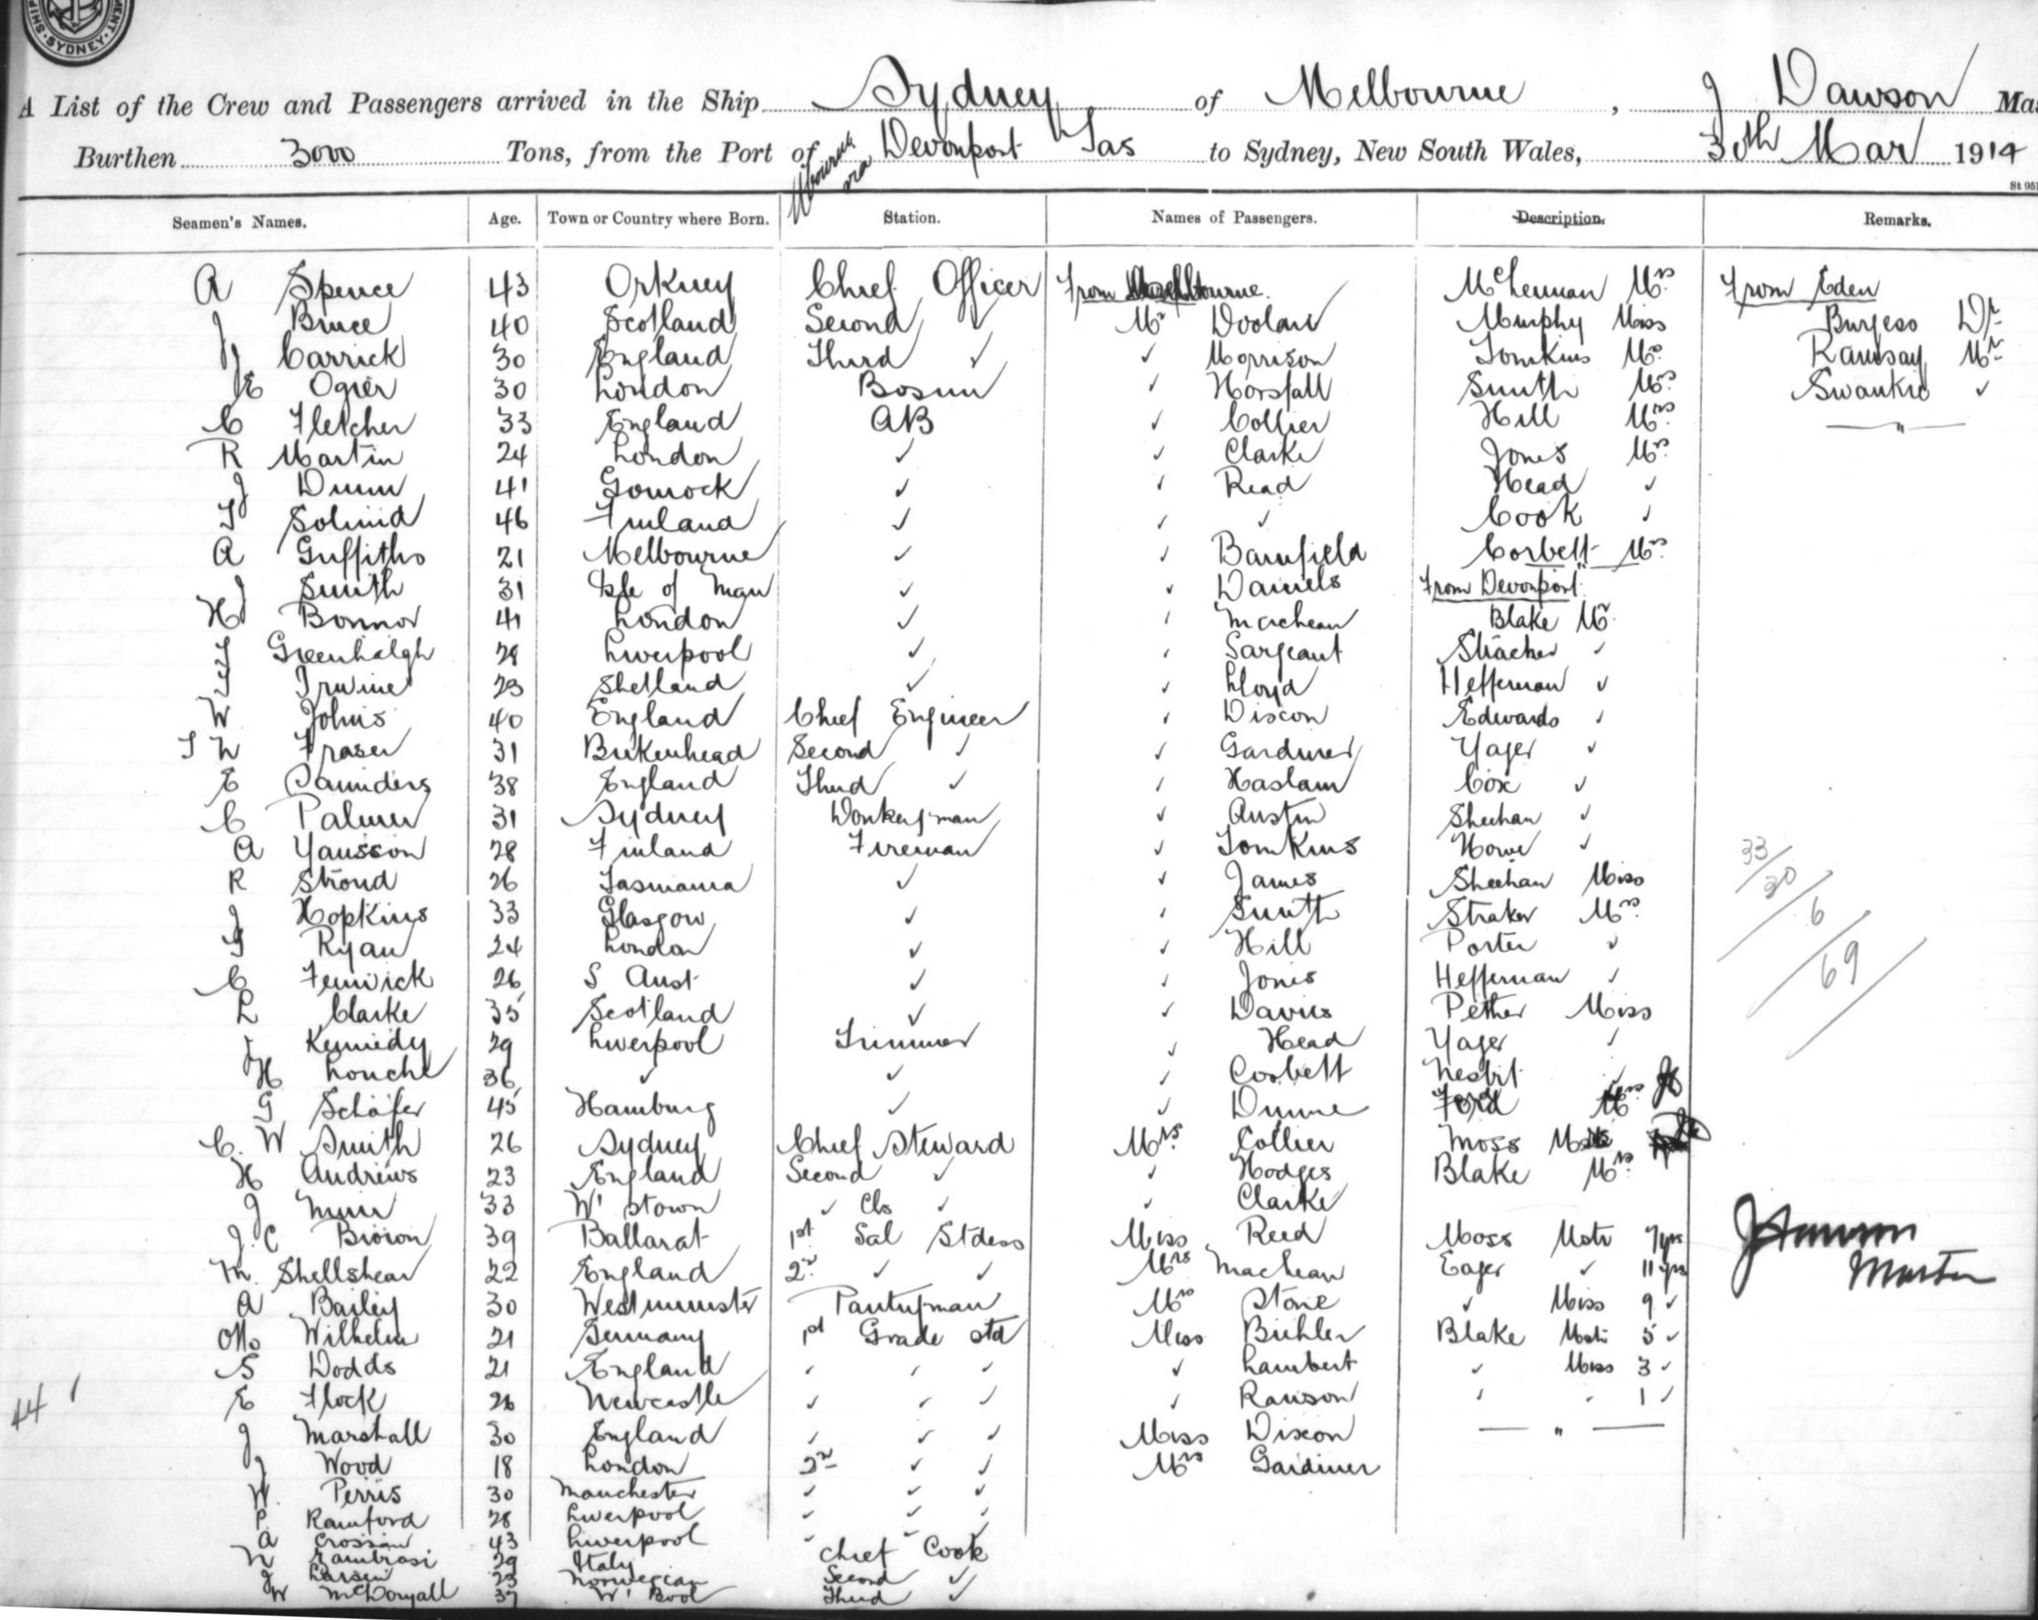 SHIP · SYDNEY · MENT
A List of the Crew and Passengers arrived in the Ship Sydney of Melbourne, J Dawson Mas
Burthen 3000 Tons, from the Port of Devonport Tas to Sydney, New South Wales, 30th Mar 1914
St 951
Seamen's Names. Age. Town or Country where Born. Station. Names of Passengers. Description. Remarks.
A Spence 43 Orkney Chief Officer From Melbourne McLennan Mrs From Eden
J Bruce 40 Scotland Second ✓ Mr Doolan Murphy Miss Burgess Dr
J Carrick 30 England Third ✓ ✓ Morrison Tomkins Mrs Ramsay Mr
E Ogier 30 London Bosun ✓ Horsfall Smith Mrs Swankie ✓
C Fletcher 33 England AB ✓ Collier Hill Mrs "
R Martin 24 London ✓ ✓ Clarke Jones Mrs
J Dunn 41 Gourock ✓ ✓ Read Head ✓
T 46 Finland ✓ ✓ ✓ Cook ✓
A Griffiths 21 Melbourne ✓ ✓ Bamfield Corbett Mrs
J Smith 31 Isle of Man ✓ ✓ Daniels From Devonport
H Bonnor 41 London ✓ ✓ Maclean Blake Mr
T Greenhalgh 28 Liverpool ✓ ✓ Sargeant ✓
Irvine 23 Shetland ✓ ✓ Lloyd Heffernan ✓
W Johns 40 England Chief Engineer ✓ Dixon Edwards ✓
T W Fraser 31 Birkenhead Second ✓ ✓ Gardiner Yager ✓
E Saunders 38 England Third ✓ ✓ Haslam Cox ✓
C Palmer 31 Sydney Donkeyman ✓ Austin Sheehan ✓
A Yansson 28 Finland Fireman ✓ Tomkins Howe ✓
R Stroud 26 Tasmania ✓ ✓ James Sheehan Miss
J Hopkins 33 Glasgow ✓ ✓ Smith Straker Mrs
T Ryan 24 London ✓ ✓ Hill Porter ✓
C Fenwick 26 S Aust ✓ ✓ Jones Heffernan ✓
L Clarke 35 Scotland ✓ ✓ Davies Pether Miss
J Kennedy 29 Liverpool Trimmer ✓ Head Yager ✓
H 36 ✓ ✓ ✓ Corbett Nesbit ✓
G Schäfer 45 Hamburg ✓ ✓ Dunne Ford Mrs
C. W Smith 26 Sydney Chief Steward Mrs Collier Moss
H Andrews 23 England Second ✓ ✓ Hodges Blake Mrs
J Muir 33 W'stown ✓ Cls ✓ ✓ Clarke
J. C Brown 39 Ballarat 1st Sal Stdess Miss Reed Moss Mstr 7 yrs
M. Shellshear 22 England 2nd ✓ ✓ Mrs Maclean Eager ✓ 11 yrs
A Bailey 30 Westminster Pantryman Mrs Stone ✓ Miss 9 ✓
Otto Wilhelm 21 Germany 1st Grade Std Miss Buhler Blake Mstr 5 ✓
S Dodds 21 England ✓ ✓ ✓ ✓ Lambert ✓ Miss 3 ✓
E Flock 26 Newcastle ✓ ✓ ✓ ✓ Ranson ✓ 1 ✓
J Marshall 30 England ✓ ✓ ✓ Miss Dixon "
J Wood 18 London 2nd ✓ ✓ Mrs Gardiner
W. Perris 30 Manchester ✓ ✓ ✓
P. Ramford 28 Liverpool ✓ ✓ ✓
A Crossan 43 Liverpool Chief Cook
N Lambrosi 29 Italy Second ✓
J Larsen 23 Norwegian Third ✓
W McDougall 37 W'Bool
33
30
6
69
J Dawson
Master
44